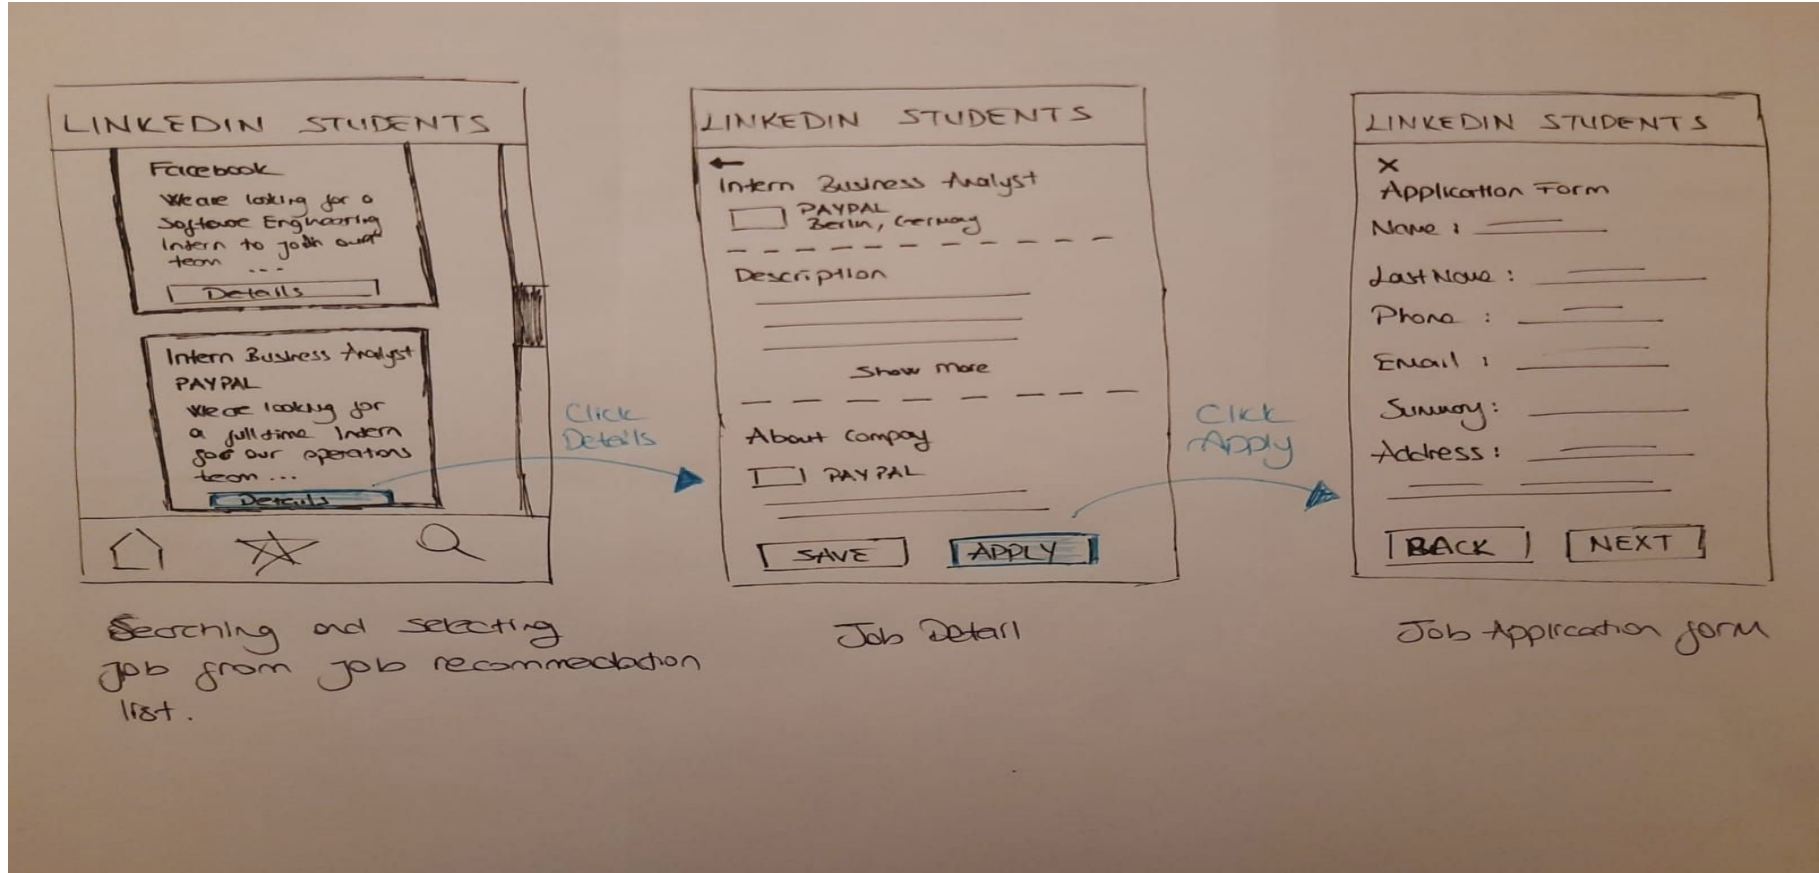 LINKEDIN STUDENTS
Facebook
We are looking for a
Software Engineering
Intern to join our
team ...
Details
Intern Business Analyst
PAYPAL
We are looking for
a full time Intern
for our operations
team ...
Details
Searching and selecting
job from job recommedation
list.
Click
Details
LINKEDIN STUDENTS
Intern Business Analyst
PAYPAL
Berlin, Germany
Description
Show more
About Compay
PAYPAL
SAVE
APPLY
Job Detail
Click
Apply
LINKEDIN STUDENTS
X
Application Form
Name :
Last Name :
Phone :
Email :
Summary :
Address :
BACK
NEXT
Job Application form